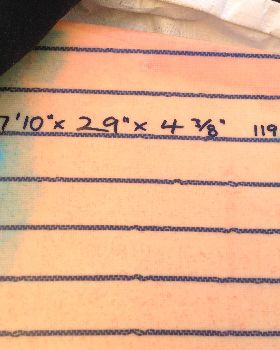 7'10" x 29" x 4 3/8" 119